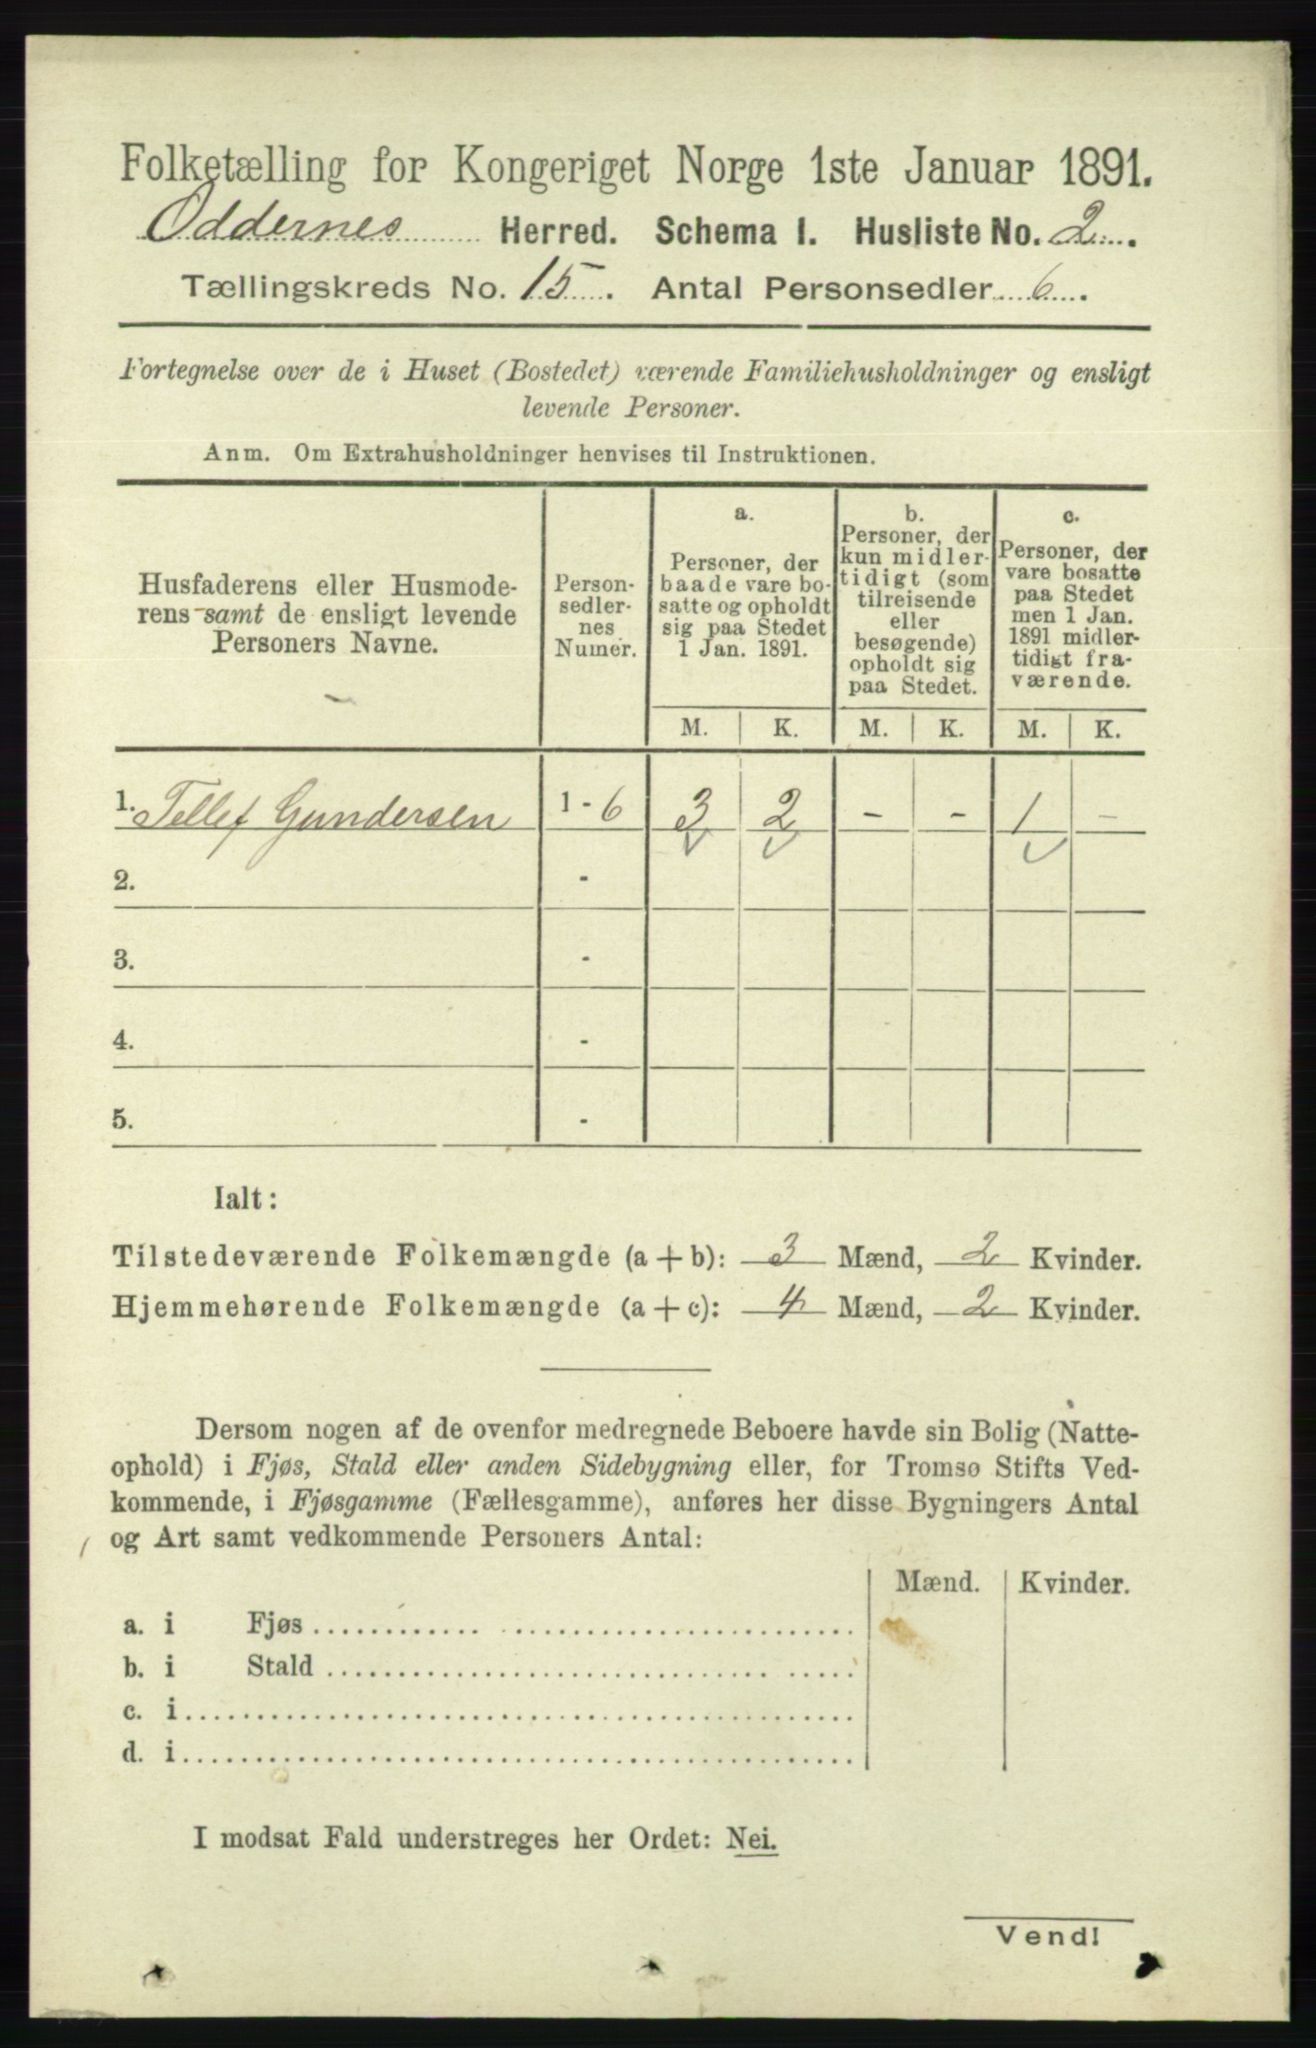 Folketælling for Kongeriget Norge 1ste Januar 1891.
Oddernes Herred. Schema I. Husliste No. 2.
Tællingskreds No. 15. Antal Personsedler 6.
Fortegnelse over de i Huset (Bostedet) værende Familiehusholdninger og ensligt
levende Personer.
Anm. Om Extrahusholdninger henvises til Instruktionen.
Husfaderens eller Husmode-
rens samt de ensligt levende
Personers Navne.
Person-
sedler-
nes
Numer.
a.
Personer, der
baade vare bo-
satte og opholdt
sig paa Stedet
1 Jan. 1891.
b.
Personer, der
kun midler-
tidigt (som
tilreisende
eller
besøgende)
opholdt sig
paa Stedet.
c.
Personer, der
vare bosatte
paa Stedet
men 1 Jan.
1891 midler-
tidigt fra-
værende.
M. K. M. K. M. K.
1. Tellef Gundersen 1 - 6 3 2 - - 1 -
2. -
3. -
4. -
5. -
Ialt:
Tilstedeværende Folkemængde (a + b): 3 Mænd, 2 Kvinder.
Hjemmehørende Folkemængde (a + c): 4 Mænd, 2 Kvinder.
Dersom nogen af de ovenfor medregnede Beboere havde sin Bolig (Natte-
ophold) i Fjøs, Stald eller anden Sidebygning eller, for Tromsø Stifts Ved-
kommende, i Fjøsgamme (Fællesgamme), anføres her disse Bygningers Antal
og Art samt vedkommende Personers Antal:
Mænd. Kvinder.
a. i Fjøs
b. i Stald
c. i
d. i
I modsat Fald understreges her Ordet: Nei.
Vend!